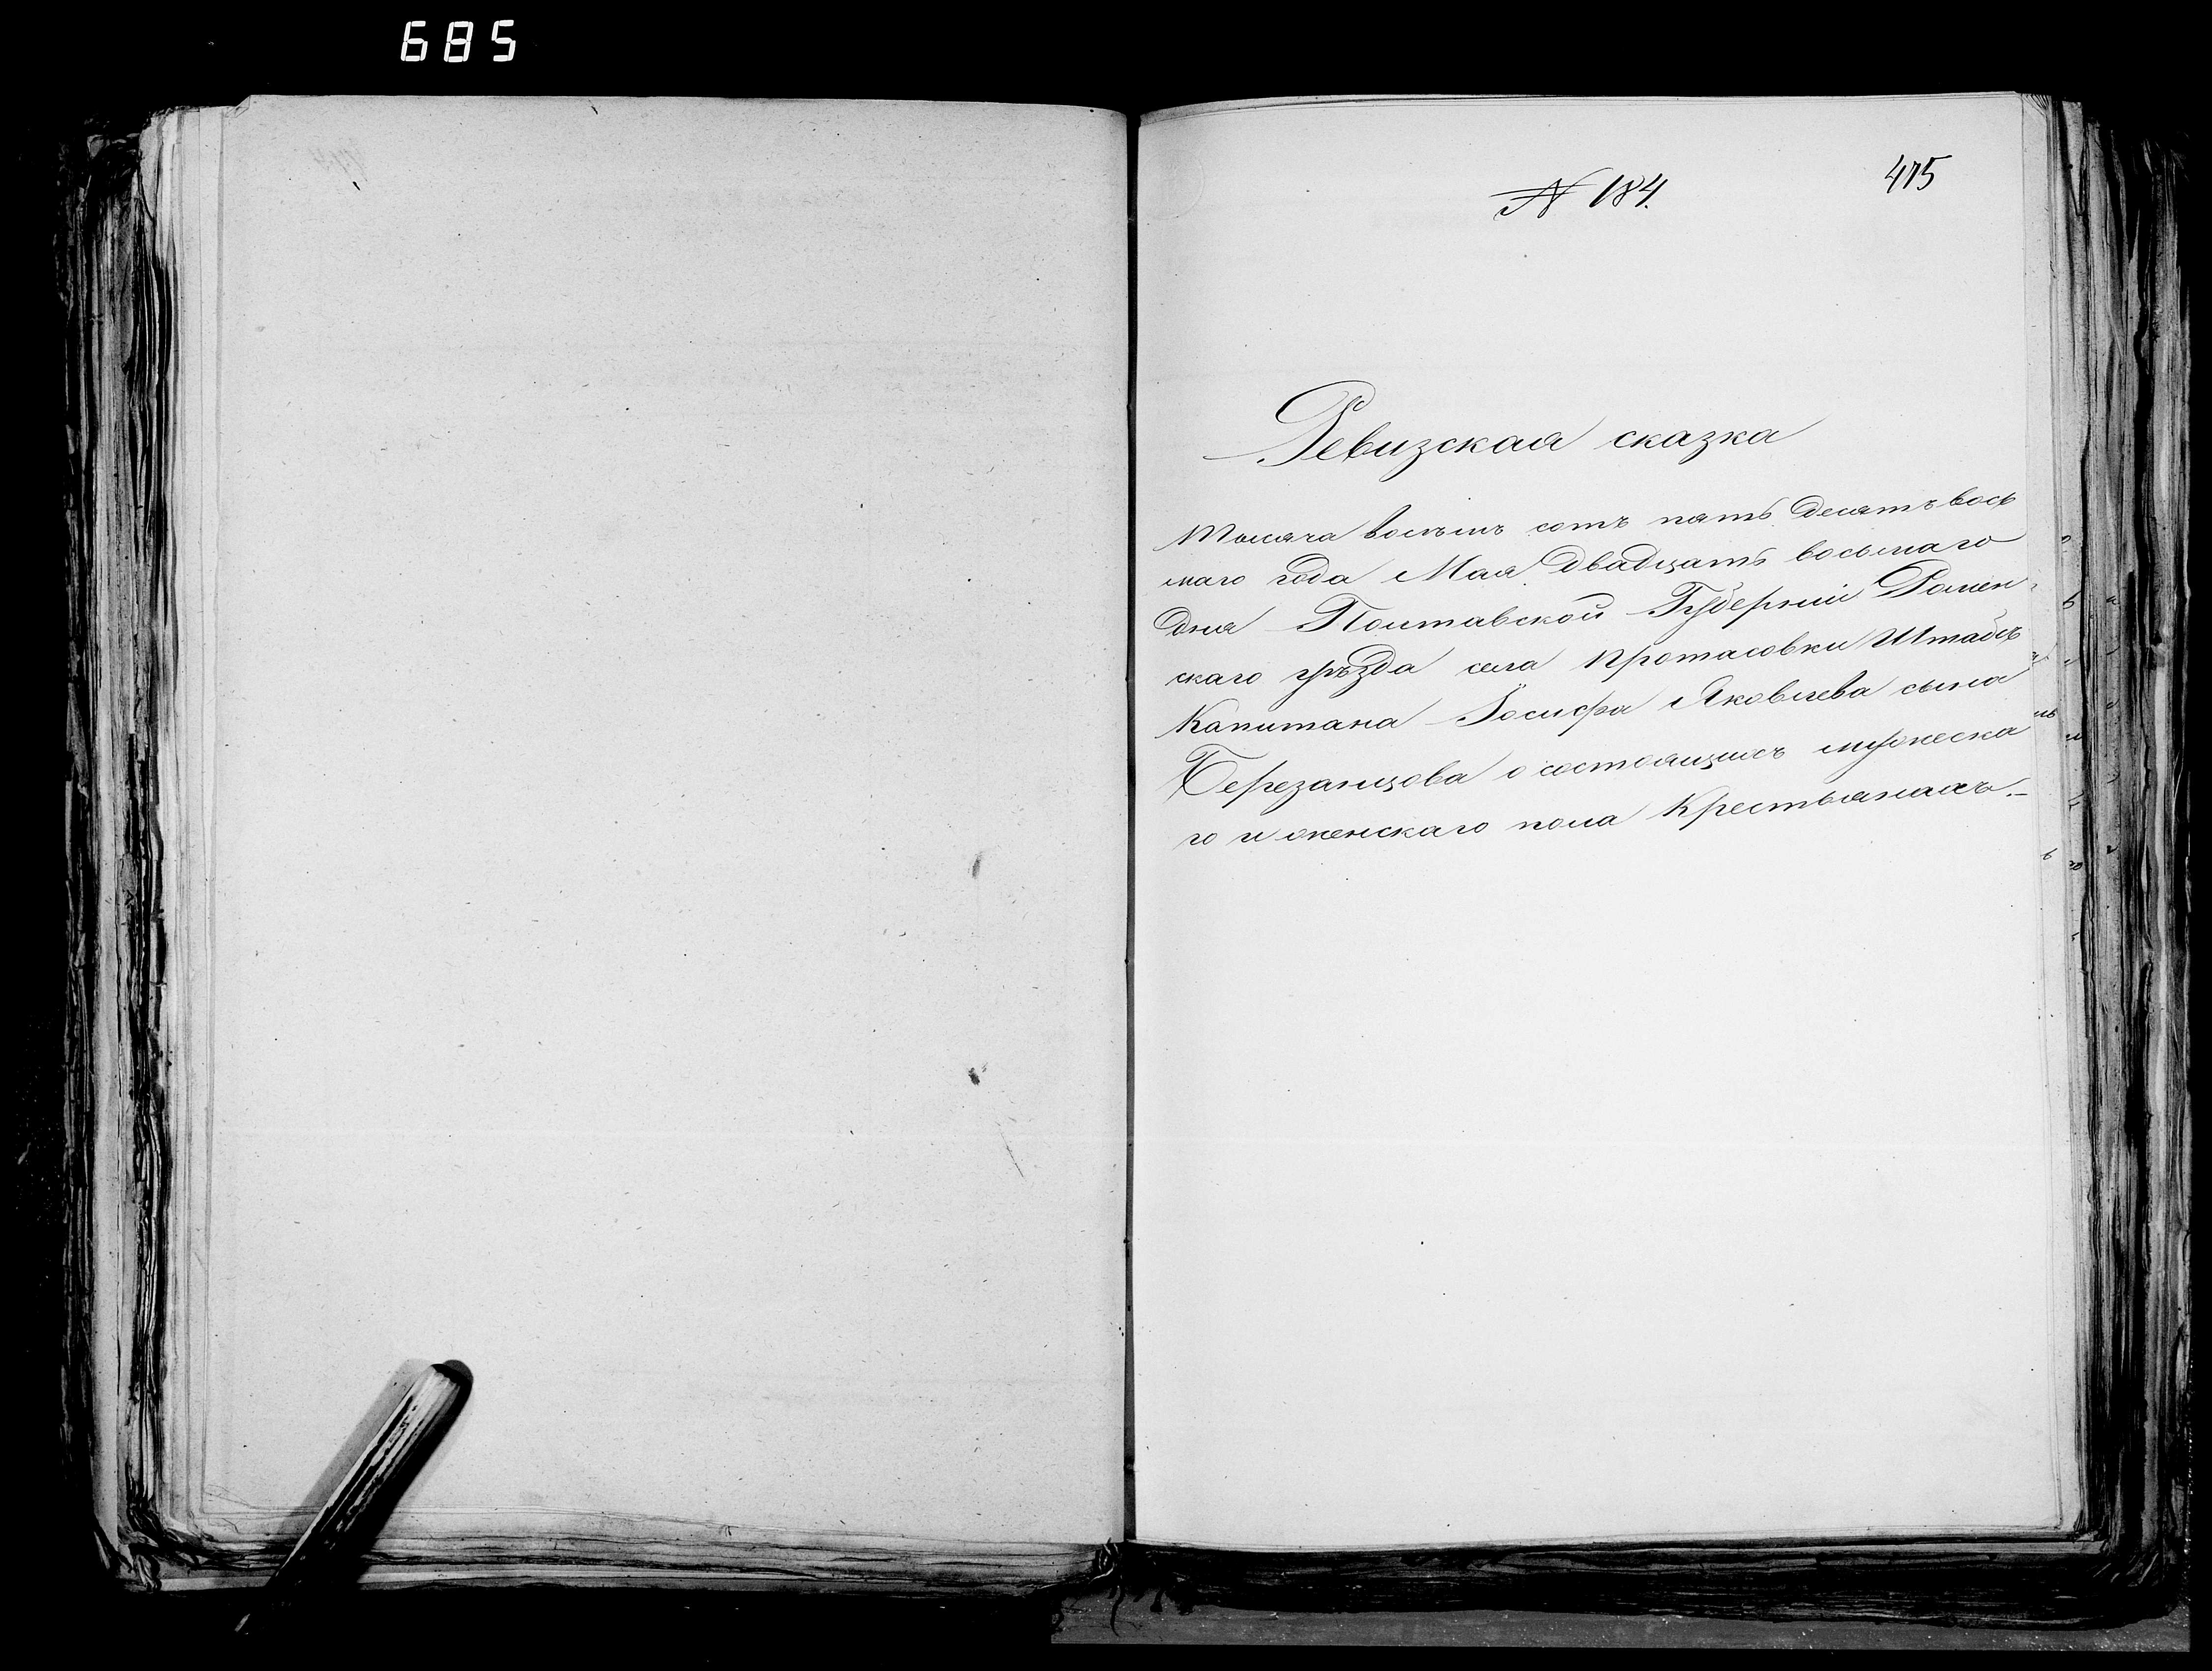 685
№ 184.
475
Ревизская сказка
Тысяча восемь сотъ пять десятъ вось
маго года Мая двадцать восьмаго
дня Полтавской Губерніи Ромен-
скаго уѣзда села Протасовки Штабсъ
Капитана Іосифа Яковлева сына
Березанцова о состоящихъ мужеска
го и женскаго пола Крестьянахъ.-